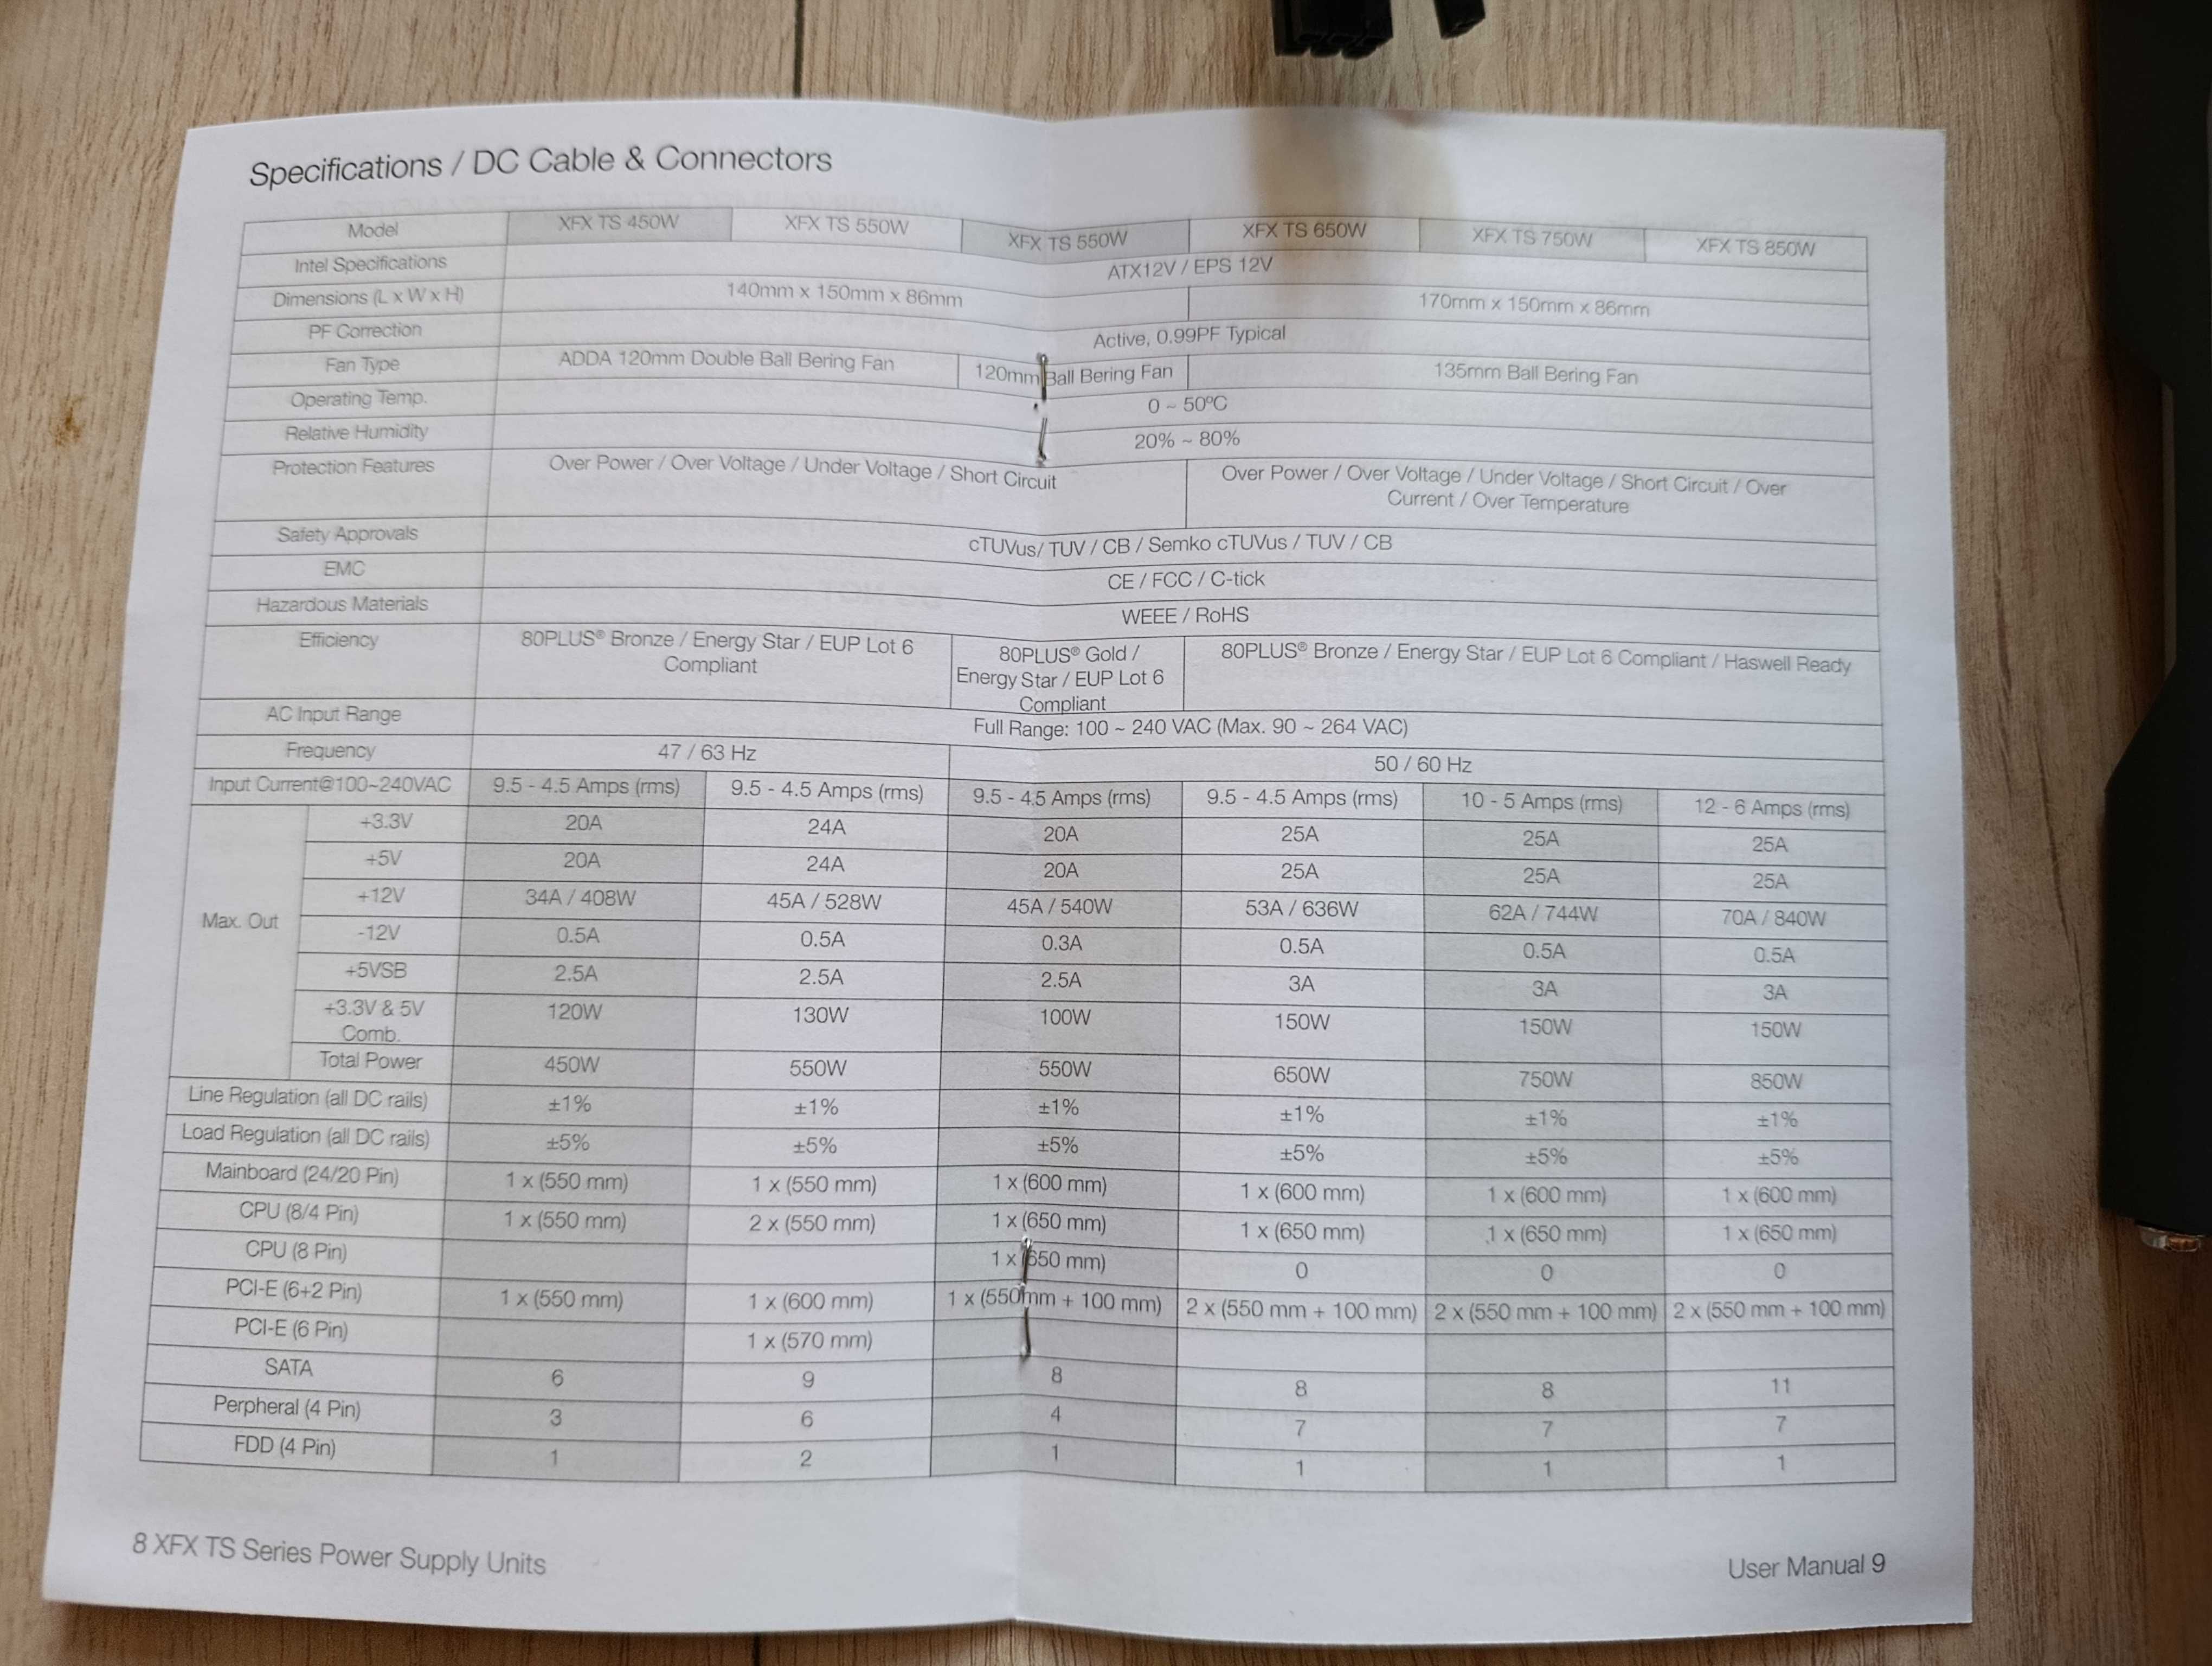 Specifications / DC Cable & Connectors
Model XFX TS 450W XFX TS 550W XFX TS 550W XFX TS 650W XFX TS 750W XFX TS 850W
Intel Specifications ATX12V / EPS 12V
Dimensions (L x W x H) 140mm x 150mm x 86mm 170mm x 150mm x 86mm
PF Correction Active, 0.99PF Typical
Fan Type ADDA 120mm Double Ball Bering Fan 120mm Ball Bering Fan 135mm Ball Bering Fan
Operating Temp. 0 ~ 50ºC
Relative Humidity 20% ~ 80%
Protection Features Over Power / Over Voltage / Under Voltage / Short Circuit Over Power / Over Voltage / Under Voltage / Short Circuit / Over
Current / Over Temperature
Safety Approvals cTUVus/ TUV / CB / Semko cTUVus / TUV / CB
EMC CE / FCC / C-tick
Hazardous Materials WEEE / RoHS
Efficiency 80PLUS® Bronze / Energy Star / EUP Lot 6 80PLUS® Gold / 80PLUS® Bronze / Energy Star / EUP Lot 6 Compliant / Haswell Ready
Compliant Energy Star / EUP Lot 6
Compliant
AC Input Range Full Range: 100 ~ 240 VAC (Max. 90 ~ 264 VAC)
Frequency 47 / 63 Hz 50 / 60 Hz
Input Current@100~240VAC 9.5 - 4.5 Amps (rms) 9.5 - 4.5 Amps (rms) 9.5 - 4.5 Amps (rms) 9.5 - 4.5 Amps (rms) 10 - 5 Amps (rms) 12 - 6 Amps (rms)
Max. Out
+3.3V 20A 24A 20A 25A 25A 25A
+5V 20A 24A 20A 25A 25A 25A
+12V 34A / 408W 45A / 528W 45A / 540W 53A / 636W 62A / 744W 70A / 840W
-12V 0.5A 0.5A 0.3A 0.5A 0.5A 0.5A
+5VSB 2.5A 2.5A 2.5A 3A 3A 3A
+3.3V & 5V 120W 130W 100W 150W 150W 150W
Comb.
Total Power 450W 550W 550W 650W 750W 850W
Line Regulation (all DC rails) ±1% ±1% ±1% ±1% ±1% ±1%
Load Regulation (all DC rails) ±5% ±5% ±5% ±5% ±5% ±5%
Mainboard (24/20 Pin) 1 x (550 mm) 1 x (550 mm) 1 x (600 mm) 1 x (600 mm) 1 x (600 mm) 1 x (600 mm)
CPU (8/4 Pin) 1 x (550 mm) 2 x (550 mm) 1 x (650 mm) 1 x (650 mm) 1 x (650 mm) 1 x (650 mm)
CPU (8 Pin) 1 x (650 mm) 0 0 0
PCI-E (6+2 Pin) 1 x (550 mm) 1 x (600 mm) 1 x (550mm + 100 mm) 2 x (550 mm + 100 mm) 2 x (550 mm + 100 mm) 2 x (550 mm + 100 mm)
PCI-E (6 Pin) 1 x (570 mm)
SATA 6 9 8 8 8 11
Perpheral (4 Pin) 3 6 4 7 7 7
FDD (4 Pin) 1 2 1 1 1 1
8 XFX TS Series Power Supply Units
User Manual 9